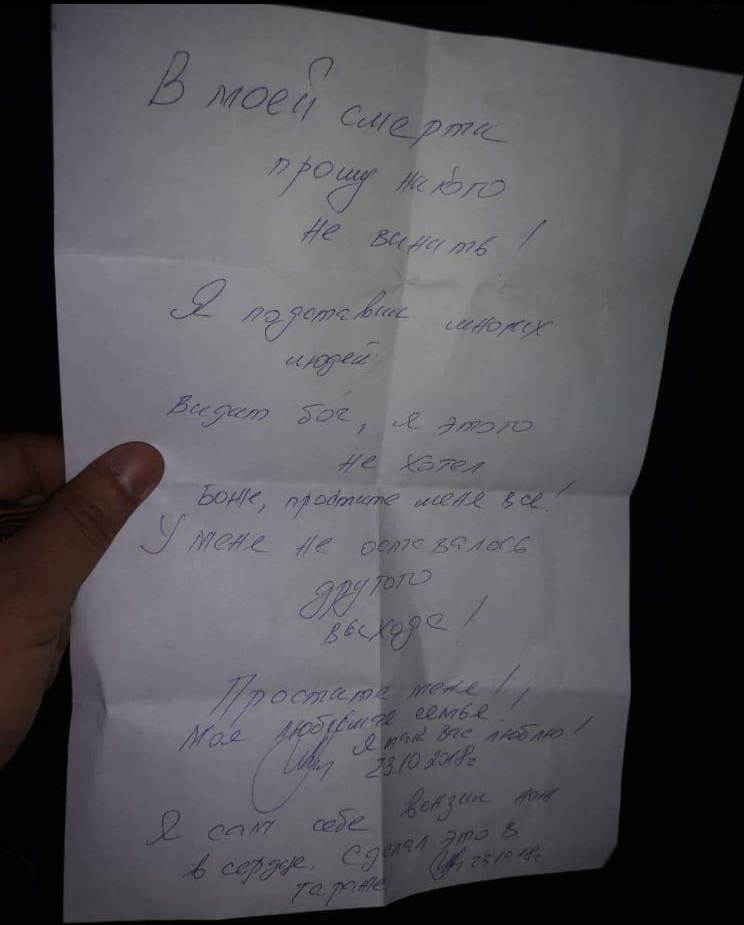 В моей смерти
прошу никого
не винить!
Я подставил многих
людей.
Видит бог, я этого
не хотел
Боже, простите меня все!
У меня не оставалось
другого
выхода!
Простите меня!
Моя любимая семья!
Я так вас люблю!
23.10.2018г
Я сам себе вонзил нож
в сердце. Сделал это в
гараже. 23.10.18г.